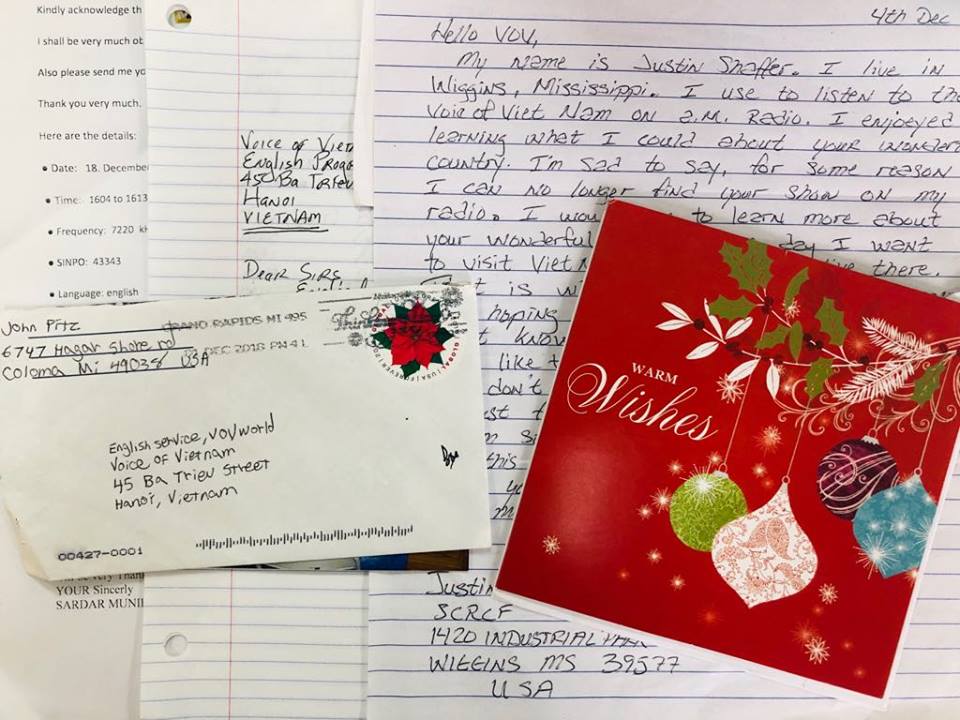 Kindly acknowledge th
I shall be very much ob
Also please send me yo
Thank you very much.
Here are the details:
• Date: 18. December
• Time: 1604 to 1613
• Frequency: 7220 kH
• SINPO: 43343
• Language: english
YOUR Sincerly
SARDAR MUNI
Voice of Viet
English Progr
450 Ba
Hanoi
VIETNAM
Dear Sirs
4th Dec
Hello VOV,
My name is Justin Shaffer. I live in
Wiggins, Mississippi. I use to listen to the
Voice of Viet Nam on a.m. Radio. I enjoeyed
learning what I could about your wonderf
country. I'm sad to say, for some reason
I can no longer find your show on my
radio. I wou to learn more about
your wonderful day I want
to visit Viet live there.
is wi
hoping
know
like t
don't
this
Justin
SCRCF
1420 INDUSTRIAL
WIGGINS MS 39577
USA
John Pitz
6747 Hagar Shore rd
Coloma Mi 49038 USA
GRAND RAPIDS MI 495
DEC 2018 PM 4 L
GLOBAL USA FOREVER
English service, VOVworld
Voice of Vietnam
45 Ba Trieu Street
Hanoi, Vietnam
00427-0001
WARM
Wishes